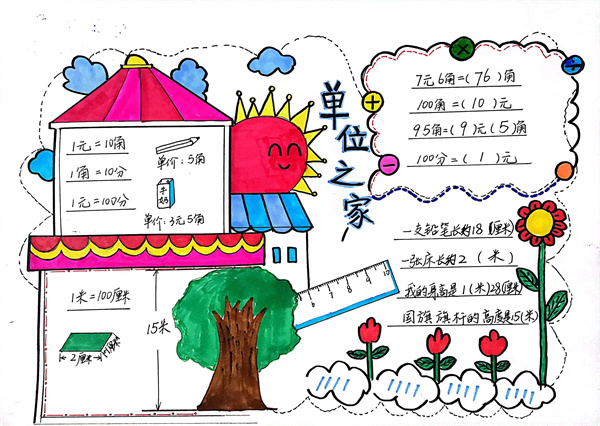 单位之家
1元=10角
1角=10分
1元=100分
单价:5角
牛奶
单价:3元5角
1米=100厘米
2厘米
1厘米
15米
10
7元6角=(76)角
100角=(10)元
95角=(9)元(5)角
100分=(1)元
一支铅笔长约18(厘米)
一张床长约2(米)
我的身高是1(米)28(厘米)
国旗旗杆的高度是15(米)